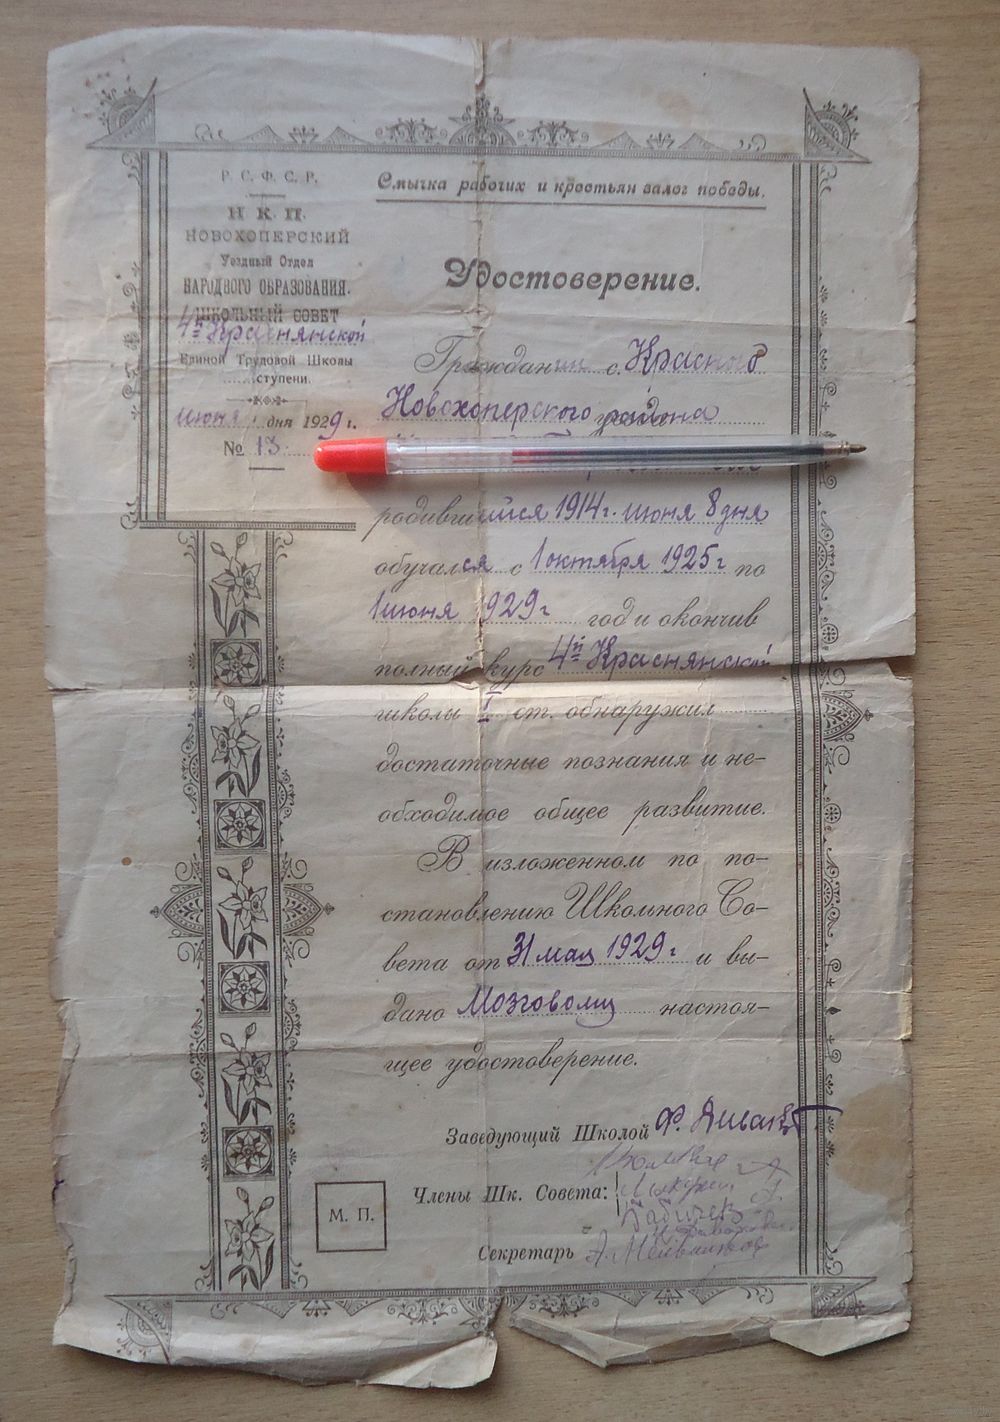 Р. С. Ф. С. Р.
Н. К. П.
НОВОХОПЕРСКИЙ
Уездный Отдел
НАРОДНОГО ОБРАЗОВАНИЯ.
ШКОЛЬНЫЙ СОВЕТ
4й Краснянской
Единой Трудовой Школы
ступени.
июня 1 дня 1929 г.
№ 13
Смычка рабочих и крестьян залог победы.
Удостоверение.
Гражданин с. Красного
Новохоперского района
родившийся 1914 г. июня 8 дня
обучался с 1 октября 1925 г по
1 июня 1929 г год и окончив
полный курс 4й Краснянской
школы I ст. обнаружил
достаточные познания и не-
обходимое общее развитие.
В изложенном по по-
становлению Школьного Со-
вета от 31 мая 1929 г и вы-
дано Мозговому настоя-
щее удостоверение.
Заведующий Школой Ф.
Члены Шк. Совета:
Секретарь А.
М. П.